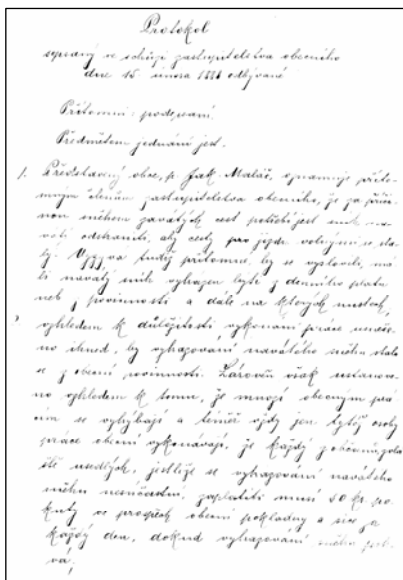 Protokol
sepsaný ve schůzi zastupitelstva obecního
dne 15. února 1888 odbývané
Přítomni: podepsaní.
Předmětem jednání jest.
1. Představený obce, p. Jak. Malář, oznamuje příto-
mným členům zastupitelstva obecního, že za příči-
nou sněhem zavátých cest potřebí jest sníh na-
vátí odstraniti, aby cesty pro jezdu volnými se sta-
ly. Vyzývá tudy přítomné, by se vyslovili, má-
li navátý sníh vyhazen býti z denního platu
neb z povinnosti a dále na kterých místech,
vzhledem k důležitosti vykonání práce usneše-
no ihned, by vyhazování navátého sněhu stalo
se z obecní povinnosti. Zároveň však ustanove-
no vzhledem k tomu, že mnozí obecným pra-
cím se vyhýbají a téměř vždy jen tytéž osoby
práce obecní vykonávají, že každý z občanů zdej-
ště usedlých, jestliže se vyhazování navátého
sněhu nesúčastní, zaplatiti musí 50 kr. po-
kuty ve prospěch obecní pokladny a sice za
každý den, dokud vyhazování sněhu potr-
vá;